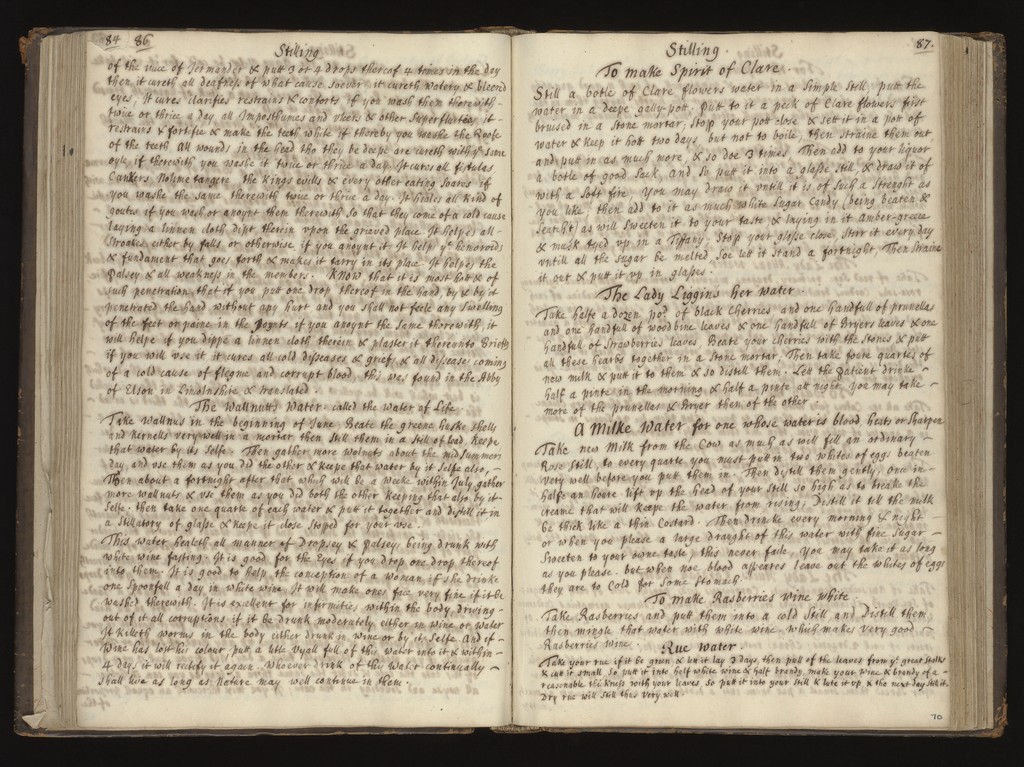 84 86
Stilling
of the vice of Jermander & putt 3 or 4 drops thereof 4 times in the day
then it cureth all deafnes of what cause soever it cureth watery & bleered
eyes, It cures clarifies restrains & conforts if you wash them therewith
twice or thrice a day all Imposthumes and ulcers & other Superfluities, it
restrains & fortifie & make the teeth white if thereby you washe the Roofe
of the teeth All wounds in the head tho they be deepe are cureth with ye same
oyle, if therewith you washe it twice or thrice a day. It cures all fistulas
Cankers, Nolime tangere the Kings evills & every other eating Soares if
you washe the same therewith twice or thrice a day. It heales all Kind of
gouts if you wash or anoynt them therewith So that they come of a cold cause
laying a linnen cloth dipt therein vpon the grieved place It helpes all
Stroakes either by falls or otherwise if you anoynt it It help ye hemoroids
& fundament that goes forth & makes it tarry in its place It helpes the
Palsey & all weakness in the members. Know that it is most hott & of
such penetration that if you putt one drop thereof in the hand, by & by it
penetrated the hand without any hurt and you shall not feele any Swelling
of the feet or paine in the Joynts if you anoynt the Same therewith, it
will helpe if you dippe a linnen cloth therein & plaster it thereunto Briefly
if you will vse it it cures all cold disseases & griefs & all dysseases coming
of a cold cause of flegme and corrupt blood, this was found in the Abby
of Elson in Lincolnshire & translated.
The Wallnutts Water called the Water of Life
Take Wallnuts in the beginning of June Beate the greene huske shells
and Kernells very well in a mortar then Still them in a Still of lead Keepe
that water by its Selfe. Then gather more walnuts about the midsummer
day, and vse them as you did the other & Keepe that water by it Selfe also,
Then about a fortnight after that which will be a weeke within July gather
more wallnuts & vse them as you did both the other Keeping that also by it
Selfe, then take one quarte of each water & putt it together and distill it in
a Stillatory of glasse & Keepe it close Stoped for your vse.
This water healeth all manner of Dropsey & Palsey, being drunk with
white wine fasting. It is good for the Eyes if you drop one drop thereof
into them. It is good to help the conception of a Woman if she drinke
one Spoonfell a day in white wine. It will make ones face very fine if it be
washed therewith. It is exellent for infirmities within the body, driving
out of it all corruptions if it be drunk moderately either in wine or water
It Killeth worms in the body either drunk in wine or by it Selfe And if
Wine has lost his colour, putt a little Vyall full of this water into it & within
4 days it will rectefy it again. Whoever drink of the Water continually
Shall live as long as Nature may well continue in them.
87.
Stilling.
To make Spirit of Clare
Still a botle of Clare flowers water in a Simple Still, putt the
water in a deepe gally-pott. Putt to it a peck of Clare flowers first
bruised in a Stone mortar, Stop your pott close & sett it in a pott of
water & Keep it hott two days, but not to boile, Then Straine them out
and putt in as much more, & so doe 3 times Then add to your liquor
a botle of good Sack, and So putt it into a glasse Still, & draw it of
with a Soft fire. You may draw it vntill it is of Such a Strenght as
you like, then add to it as much white Sugar Candy (being beaten &
Searcht) as will Sweeten it to your taste & laying in it amber-greece
& musk tyed vp in a Tiffany. Stop your glasse close, Sturr it every day
vntill all the Sugar be melted, Soe lett it stand a fortnight, Then Straine
it out & putt it vp in glasses.
The Lady Liggins her water.
Take halfe a dozen pod. of black Cherries and one handfull of prunellas
and one handfull of wood bine leaves & one handfull of Bryers leaves & one
handfull of Strawberries leaves Beate your cherries with the Stones & putt
all these hearbs together in a Stone mortar. Then take foure quartes of
new milk & putt it to them & So distill them. Lett the Patient drinke
half a pinte in the morning & half a pinte att night you may take
more of the prunellas & Bryer then of the other
A Milke Water for one whose water is blood, heats or Sharpen
Take new Milk from the Cow as much as will fill an ordinary
Rose Still, to every quarte you must putt in two whites of eggs beaten
very well before you putt them in. Then distill them gently, once in
halfe an houre lift vp the head of your Still So high as to breake the
creame that will Keepe the water from rising, Distill it till the milk
be thick like a thin Custard. Then drinke every morning & night
or when you please a large draught of this water with fine Sugar
Sweeten to your owne taste, this never faile, You may take it as long
as you please. but when noe blood appeares leave out the whites of eggs
they are to Cold for Some Stomach.
To make Rasberries Wine white.
Take Rasberries and putt them into a cold Still and Distill them,
then mingle that water with white wine. Which makes very good
Rasberries Wine.
Rue Water
Take your rue if it be green & lett it lay 3 days, then pull of the leaves from ye great Stalks
& cut it small So putt it into half white wine & half brandy, make your wine & brandy of a
reasonable thickness with your leaves, So putt it into your Still & lute it vp, & the next day Still it.
Dry rue will Still this Very well.
70